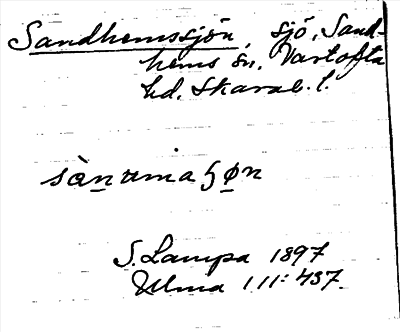 Sandhemssjön, sjö, Sand-
hems sn. Vartofta
hd. Skarab. l.
sànumaʃøn
S. Lampa 1897
Ulma 111:437.